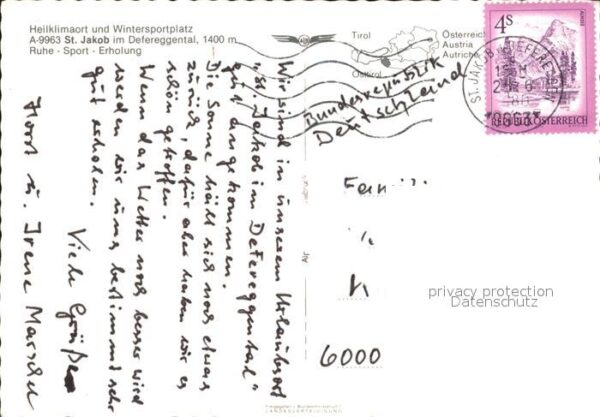 Heilklimaort und Wintersportplatz
A-9963 St. Jakob im Defereggental, 1400 m
Ruhe · Sport · Erholung
Tirol
Osttirol
Österreich
Austria
Autriche
4s
REPUBLIK ÖSTERREICH
ST. JAKOB
9963
Bundesrepublik
Deutschland
Wir sind in unserem Urlaubsort
"St. Jakob im Defereggental"
gut angekommen.
Die Sonne hält sich noch etwas
zurück, dafür aber haben wir es
schön getroffen.
Wenn das Wetter noch besser wird
werden wir uns bestimmt sehr
gut erholen.
Viele Grüße
Horst u. Irene
6000
privacy protection
Datenschutz